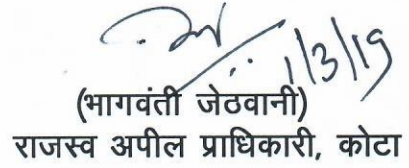 1/3/19
(भागवंती जेठवानी)
राजस्व अपील प्राधिकारी, कोटा